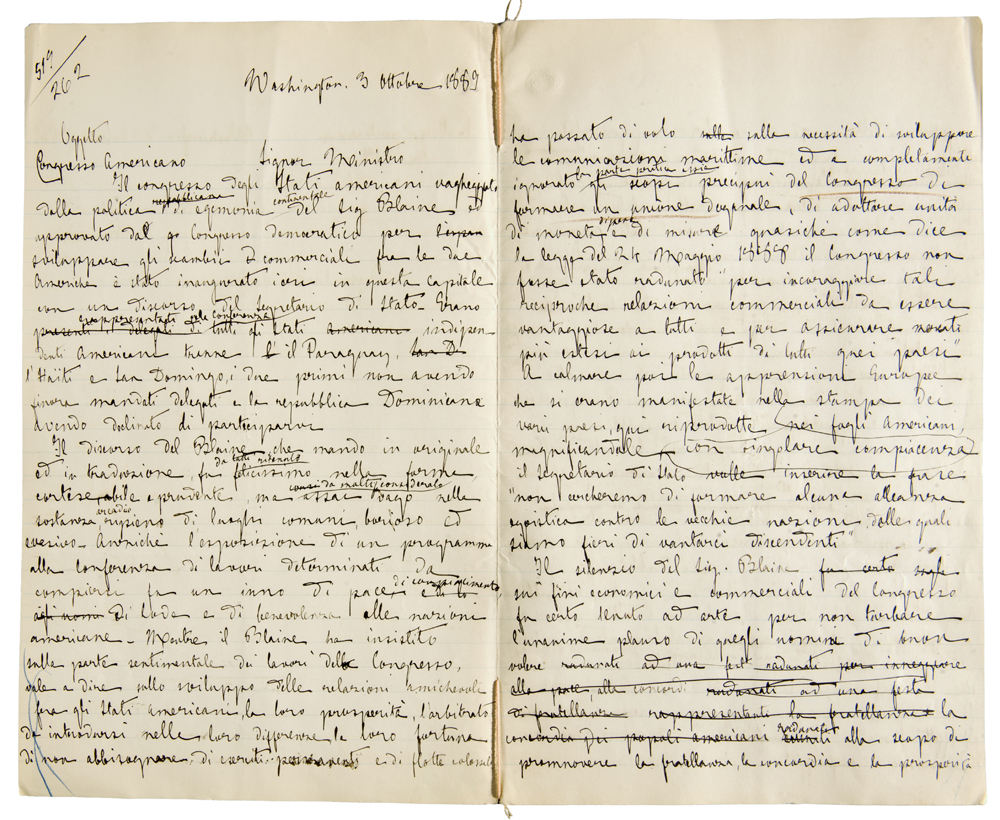 519
262
Washington. 3 Ottobre 1889
Oggetto
Congresso Americano Signor Ministro
Il congresso degli Stati americani vagheggiato
repubblicana continentale
dalla politica di egemonia del Sig Blaine ed
approvato dal Congresso democratico per
sviluppare gli scambi commerciali fra le due
Americhe è stato inaugurato ieri in questa capitale
con un discorso del Segretario di Stato. Erano
rappresentati alla conferenza
presenti i delegati di tutti gli Stati americani indipen
denti Americani tranne il Paraguay, San D
l'Haïti e San Domingo, i due primi non avendo
finora mandati delegati e la repubblica Dominicana
avendo declinato di participarvi
Il discorso del Blaine, che mando in originale
da tutti ritenuto
ed in traduzione, fu felicissimo nella forma
cortese, abile e prudente, ma assai vago nella
sostanza, ripieno di luoghi comuni, borioso ed
evasivo. Anzichè l'esposizione di un programma
alla conferenza di lavori determinati da
di compiacimento
compiersi fu un inno di pace
di lode e di benevolenza alle nazioni
americane. Mentre il Blaine ha insistito
sulla parte sentimentale dei lavori del Congresso,
vale a dire sullo sviluppo delle relazioni amichevoli
fra gli Stati americani, la loro prosperità, l'arbitrato
da introdursi nelle loro differenze, la loro fortuna
di non abbisognare di eserciti permanenti e di flotte colossali
ha passato di volo sulla necessità di sviluppare
le comunicazioni marittime ed a completamente
la parte pratica essia
ignorato gli scopi precipui del Congresso di
formare un unione doganale, di adottare unità
di pesi
di moneta e di misure quasiche come dice
la legge del 24 Maggio 1888 il congresso non
fosse stato radunato "per incoraggiare tali
reciproche relazioni commerciali da essere
vantaggiose a tutti e per assicurare mercati
più estesi ai prodotti di tutti quei paesi"
A calmare poi le apprensioni Europee
che si erano manifestate nella stampa dei
varii paesi, qui riprodotte nei fogli Americani,
magnificandole con singolare compiacenza
il Segretario di Stato volle inserire la frase
"non cercheremo di formare alcuna alleanza
egoistica contro le vecchie nazioni, dalle quali
siamo fieri di vantarci discendenti"
Il silenzio del Sig. Blaine fu certo
sui fini economici e commerciali del Congresso
fu certo tenuto ad arte per non turbare
l'unanime plauso di quegli uomini di buon
volere radunati ad una fest radunati per inneggiare
alla pace, alla concordi radunati ad una festa
di fratellanza rappresentanti la fratellanza la
concordia dei popoli americani
radunatisi
riuniti allo scopo di
promuovere la fratellanza, la concordia e la prosperità